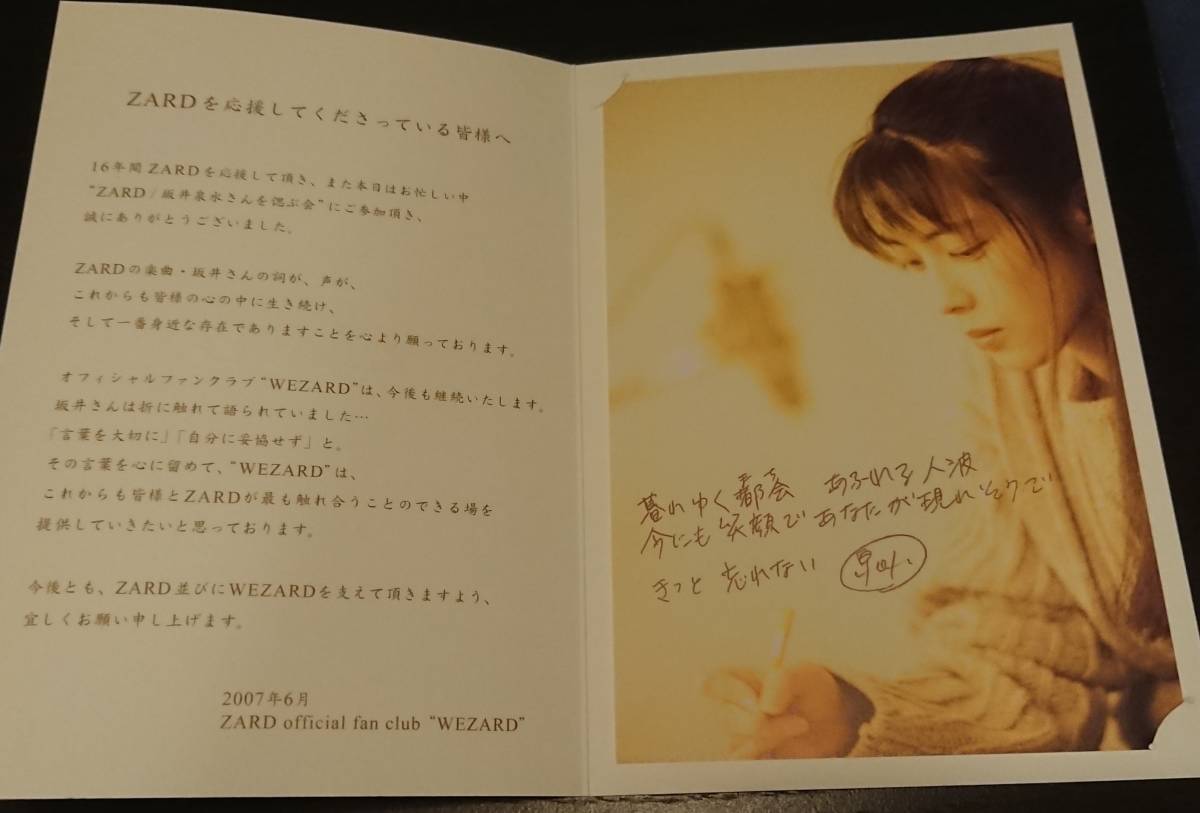 ZARDを応援してくださっている皆様へ
16年間ZARDを応援して頂き、また本日はお忙しい中
“ZARD/坂井泉水さんを偲ぶ会”にご参加頂き、
誠にありがとうございました。
ZARDの楽曲・坂井さんの詞が、声が、
これからも皆様の心の中に生き続け、
そして一番身近な存在でありますことを心より願っております。
オフィシャルファンクラブ“WEZARD”は、今後も継続いたします。
坂井さんは折に触れて語られていました…
「言葉を大切に」「自分に妥協せず」と。
その言葉を心に留めて、“WEZARD”は、
これからも皆様とZARDが最も触れ合うことのできる場を
提供していきたいと思っております。
今後とも、ZARD並びにWEZARDを支えて頂きますよう、
宜しくお願い申し上げます。
2007年6月
ZARD official fan club “WEZARD”
暮れゆく都会 あふれる人波
今にも笑顔であなたが現れそうで
きっと忘れない